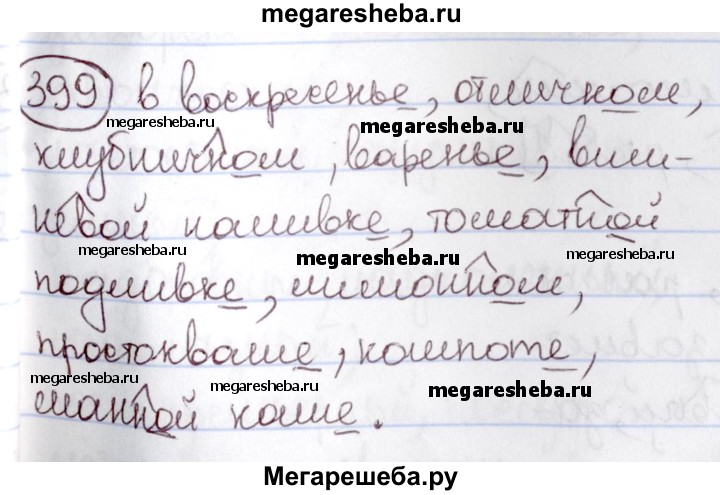 megaresheba.ru
399 в воскресенье, отличном,
megaresheba.ru megaresheba.ru
клубничном, варенье, виш-
невой наливке, томатной
megaresheba.ru megaresheba.ru megaresheba.ru
подливке, лимонном,
простокваше, компоте,
megaresheba.ru megaresheba.ru megaresheba.ru
манной каше.
Мегарешеба.ру